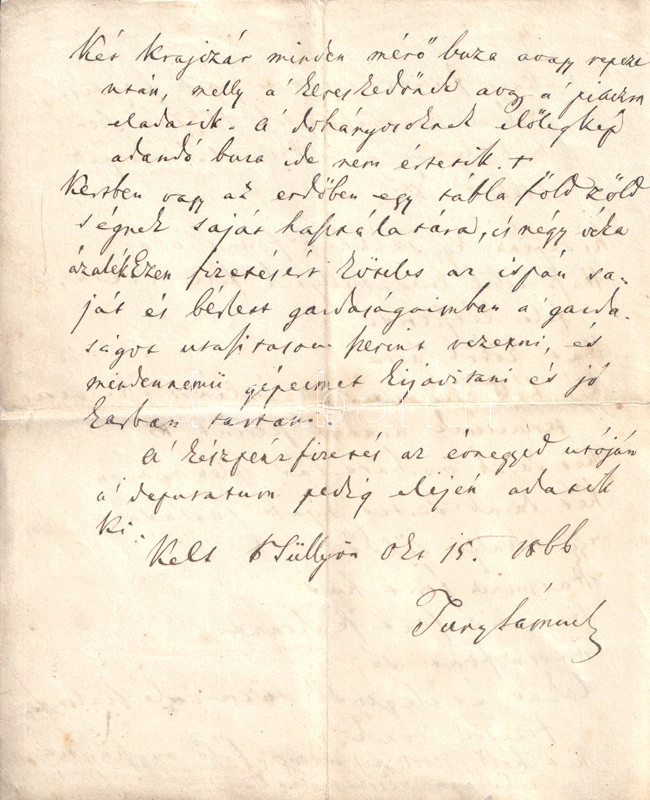 Két krajczár minden mérő buza avagy repcze
után, melly a' kereskedőnek avagy a' piaczon
eladatik. A' dohányosoknak előlegkép
adandó buza ide nem értetik. +
Kertben vagy az erdőben egy tábla föld zöld
ségnek saját használatára, és négy véka
ázalék Ezen fizetésért köteles az ispán sa-
ját és bérlett gazdaságaimban a' gazda-
ságot utasitásom szerint vezetni, és
mindennemü gépeimet kijavitani és jó
karban tartani.
A' készpénz fizetés az évnegyed utóján
a' deputatum pedig elején adatik
ki.
Kelt Süllyön Okt 15. 1866
Sámuel